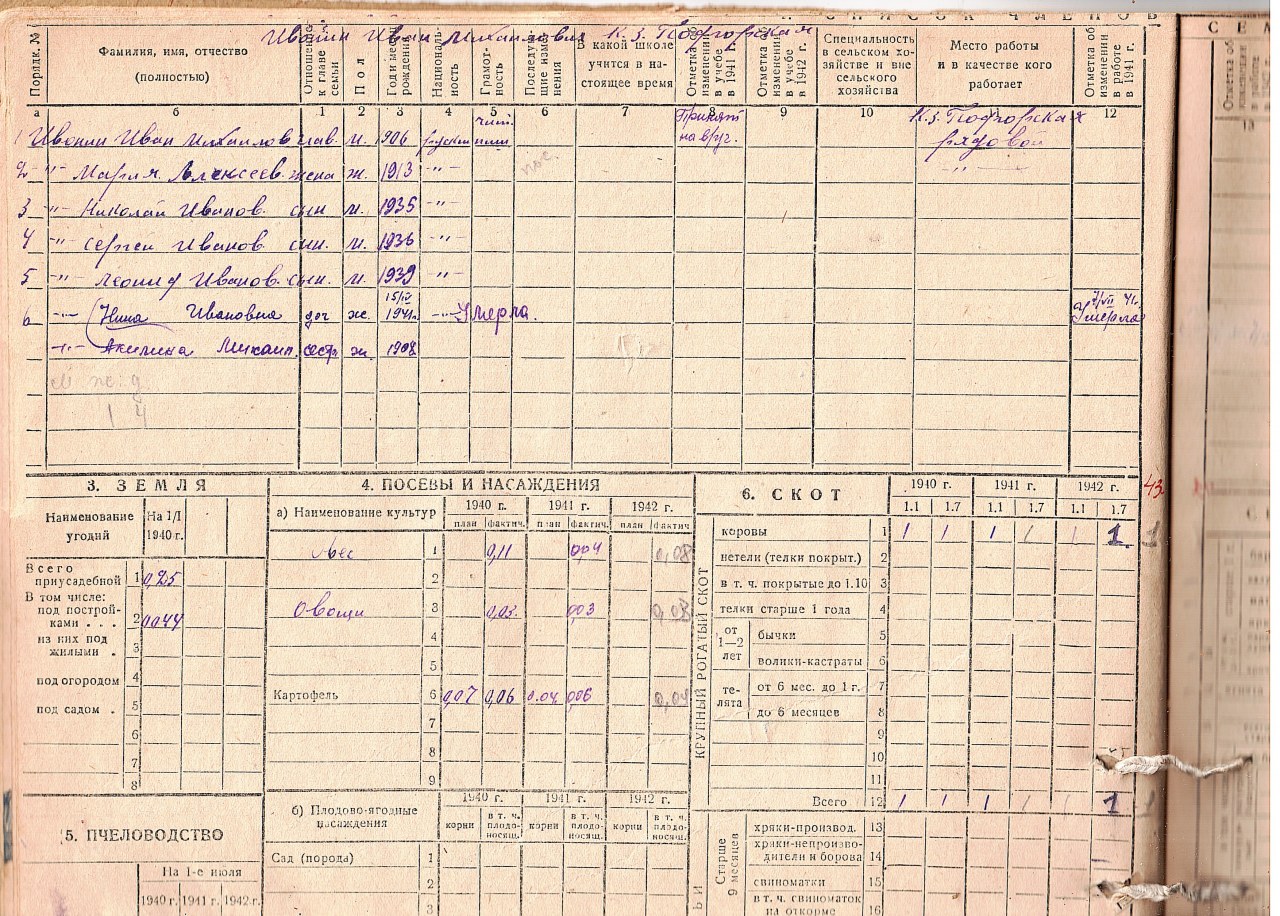 СПИСОК ЧЛЕНОВ
СЕМ
Ивонин Иван Михайлович К.З. Подгорская
Порядк. №
Фамилия, имя, отчество (полностью)
Отношение к главе семьи
Пол
Год и месяц рождения
Националь-ность
Грамот-ность
Последую-щие изме-нения
В какой школе учится в на-стоящее время
Отметка об изменении в учебе в 1941 г.
Отметка об изменении в учебе в 1942 г.
Специальность в сельском хо-зяйстве и вне сельского хозяйства
Место работы и в качестве кого работает
Отметка об изменении в работе в 1941 г.
а б 1 2 3 4 5 6 7 8 9 10 11 12 13
1 Ивонин Иван Михайлов глав. м. 1906 русский К.З. Подгорская рядовой
2 -"- Мария Алексеев. жена ж. 1913 -"- -"-
3 -"- Николай Иванов. сын м. 1935 -"-
4 -"- Сергей Иванов сын. м. 1936 -"-
5 -"- Леонид Иванов. сын. м. 1939 -"-
6 -"- Нина Ивановна доч ж. 15/IV 1941г. -"- Умерла. 7/VII 41г. Умерла
-"- Акилина Михаил. сестр ж. 1908
м ж. д
1 4
3. ЗЕМЛЯ
Наименование угодий
На 1/I 1940 г.
Всего приусадебной 1 0,25
В том числе:
под построй-ками . . . 2 0,044
из них под жилыми . 3
под огородом 4
под садом . 5
6
7
8
4. ПОСЕВЫ И НАСАЖДЕНИЯ
а) Наименование культур
1940 г. 1941 г. 1942 г.
план фактич. план фактич. план фактич
Овес 1 0,11 0,04 0,08
2
Овощи 3 0,03. 0,03 0,03
4
5
Картофель 6 0,07 0,06 0.04 0,06 0,04
7
8
9
б) Плодово-ягодные насаждения
1940 г. 1941 г. 1942 г.
корни в т. ч. плодо-носящ. корни в т. ч. плодо-носящ. корни в т. ч. плодо-носящ.
Сад (порода) 1
2
3
5. ПЧЕЛОВОДСТВО
На 1-е июля
1940 г. 1941 г. 1942 г.
6. СКОТ
1940 г. 1941 г. 1942 г. 43
1.1 1.7 1.1 1.7 1.1 1.7
КРУПНЫЙ РОГАТЫЙ СКОТ
коровы 1 1 1 1 1 1 1 1
нетели (телки покрыт.) 2
в т. ч. покрытые до 1.10 3
телки старше 1 года 4
от 1—2 лет
бычки 5
волики-кастраты 6
те-лята
от 6 мес. до 1 г. 7
до 6 месяцев 8
9
10
11
Всего 12 1 1 1 1 1 1
Старше 9 месяцев
хряки-производ. 13
хряки-непроизво-дители и борова 14
свиноматки 15
в т. ч. свиноматок на откорме 16